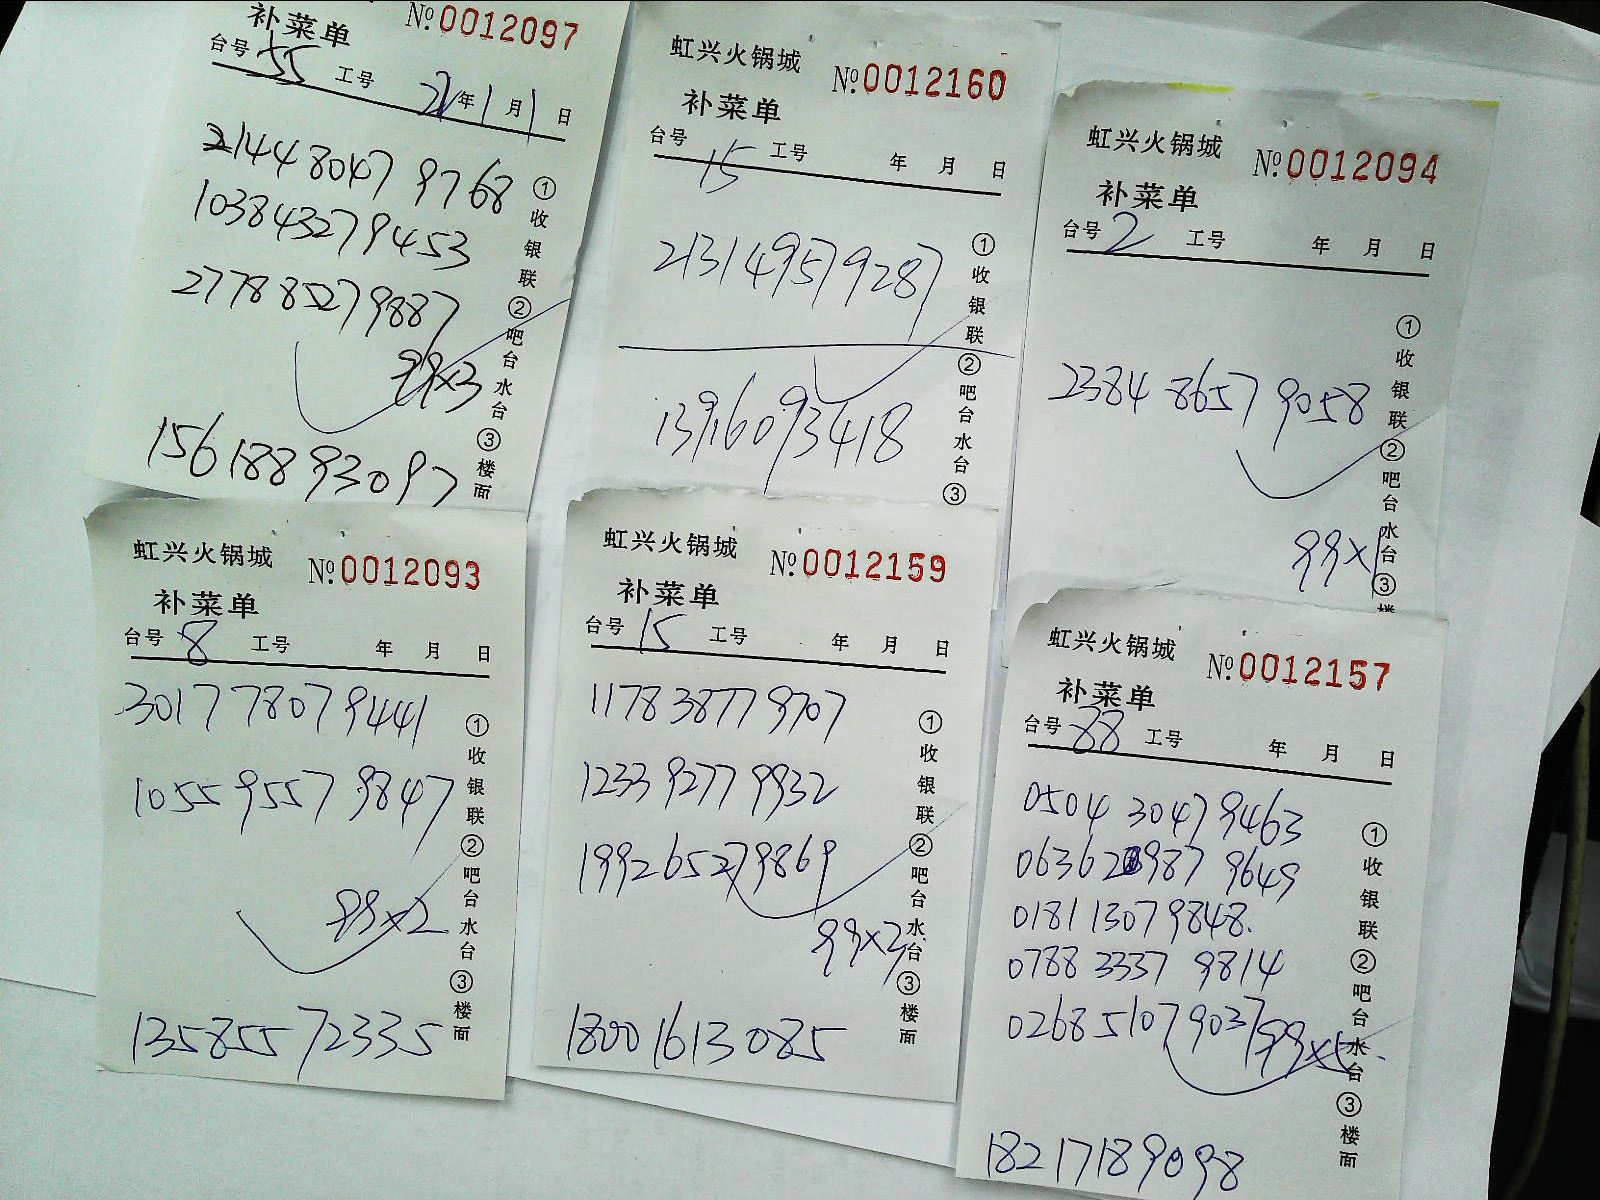 补菜单 № 0012097
台号 55 工号 21年1月1日
2144 8047 9768
1038 4327 9453
2778 8527 9887
99×3
15618893097
①收银联②吧台水台③楼面
虹兴火锅城 № 0012160
补菜单
台号 15 工号 年 月 日
2131 4957 9287
13916093418
①收银联②吧台水台③
虹兴火锅城 № 0012094
补菜单
台号 2 工号 年 月 日
2384 8657 9058
99×1
①收银联②吧台水台③楼
虹兴火锅城 № 0012093
补菜单
台号 8 工号 年 月 日
3017 7807 9441
1055 9557 9847
99×2
13585572335
①收银联②吧台水台③楼面
虹兴火锅城 № 0012159
补菜单
台号 15 工号 年 月 日
1178 3877 9707
1233 9277 9932
1992 6527 9869
99×3
18001613085
①收银联②吧台水台③楼面
虹兴火锅城 № 0012157
补菜单
台号 88 工号 年 月 日
0504 3047 9463
0181 1307 9848.
0788 3337 9814
0268 5107 9037
99×5
18217189098
①收银联②吧台水台③楼面